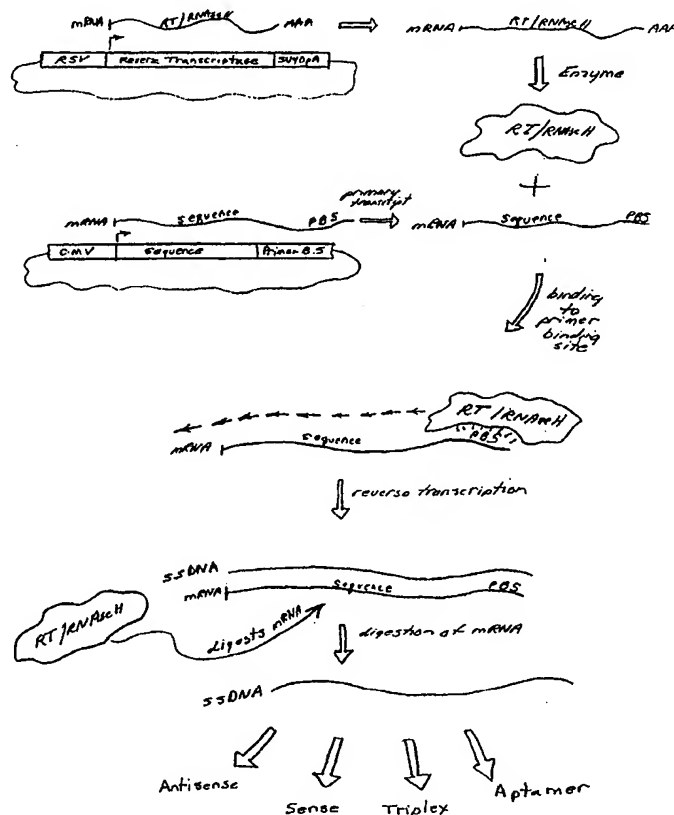 mRNA RT/RNAseH AAA
mRNA RT/RNAseH AAA
RSV Reverse Transcriptase SV40pA
Enzyme
RT/RNAseH
+
mRNA sequence PBS
primary transcript
mRNA sequence PBS
CMV Sequence Primer B.S
binding
to
primer
binding
site
RT/RNAseH
PBS
mRNA sequence
reverse transcription
ssDNA
mRNA sequence PBS
RT/RNAseH
digests mRNA
digestion of mRNA
ssDNA
Antisense
Sense
Triplex
Aptamer